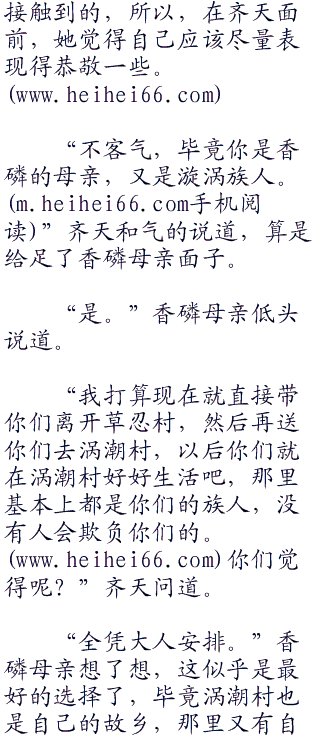 接触到的，所以，在齐天面
前，她觉得自己应该尽量表
现得恭敬一些。
(www.heihei66.com)
“不客气，毕竟你是香
磷的母亲，又是漩涡族人。
(m.heihei66.com手机阅
读)”齐天和气的说道，算是
给足了香磷母亲面子。
“是。”香磷母亲低头
说道。
“我打算现在就直接带
你们离开草忍村，然后再送
你们去涡潮村，以后你们就
在涡潮村好好生活吧，那里
基本上都是你们的族人，没
有人会欺负你们的。
(www.heihei66.com)你们觉
得呢？”齐天问道。
“全凭大人安排。”香
磷母亲想了想，这似乎是最
好的选择了，毕竟涡潮村也
是自己的故乡，那里又有自